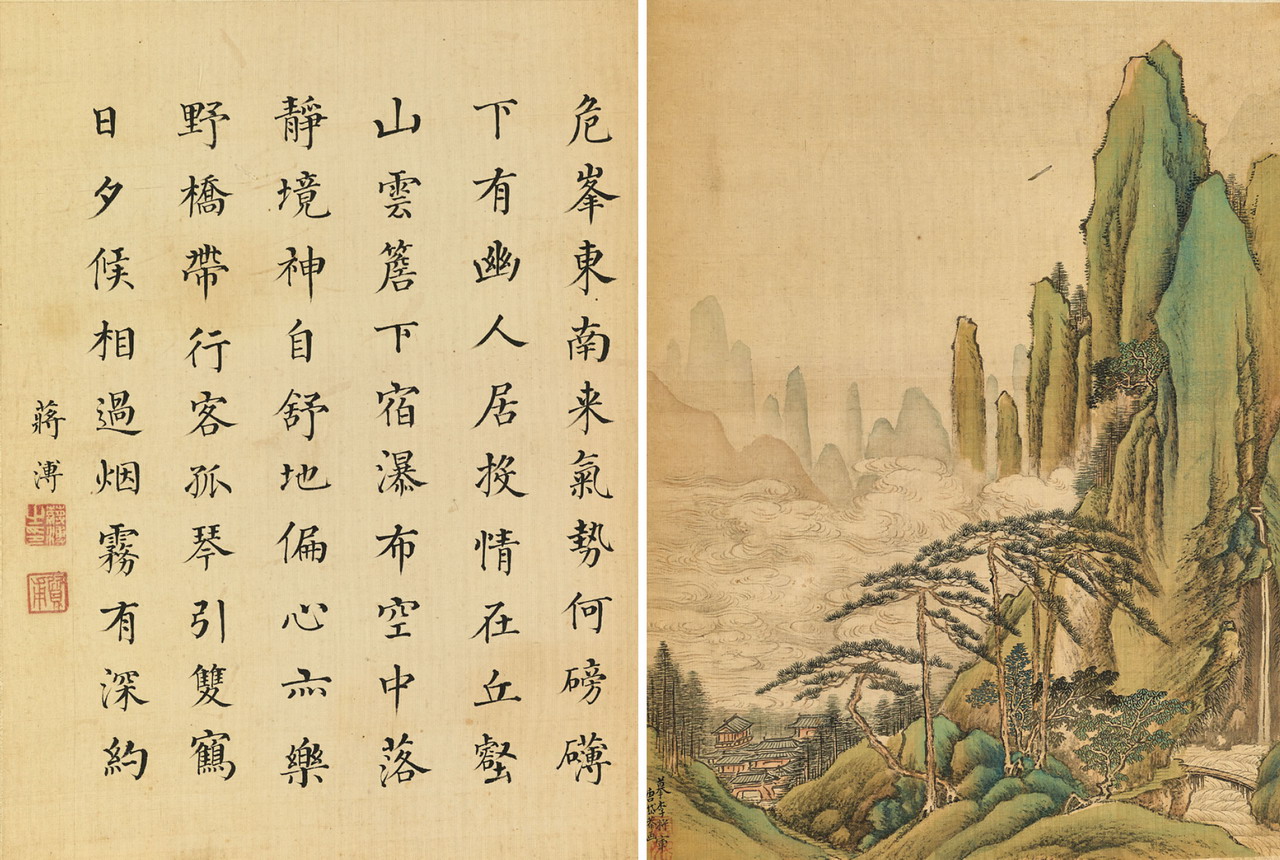 危峯東南来氣勢何磅礴
下有幽人居投情在丘壑
山雲簷下宿瀑布空中落
靜境神自舒地偏心亦樂
野橋帶行客孤琴引雙鶴
日夕候相過烟霧有深約
蔣溥
蔣溥之印
質甫
摹李將軍